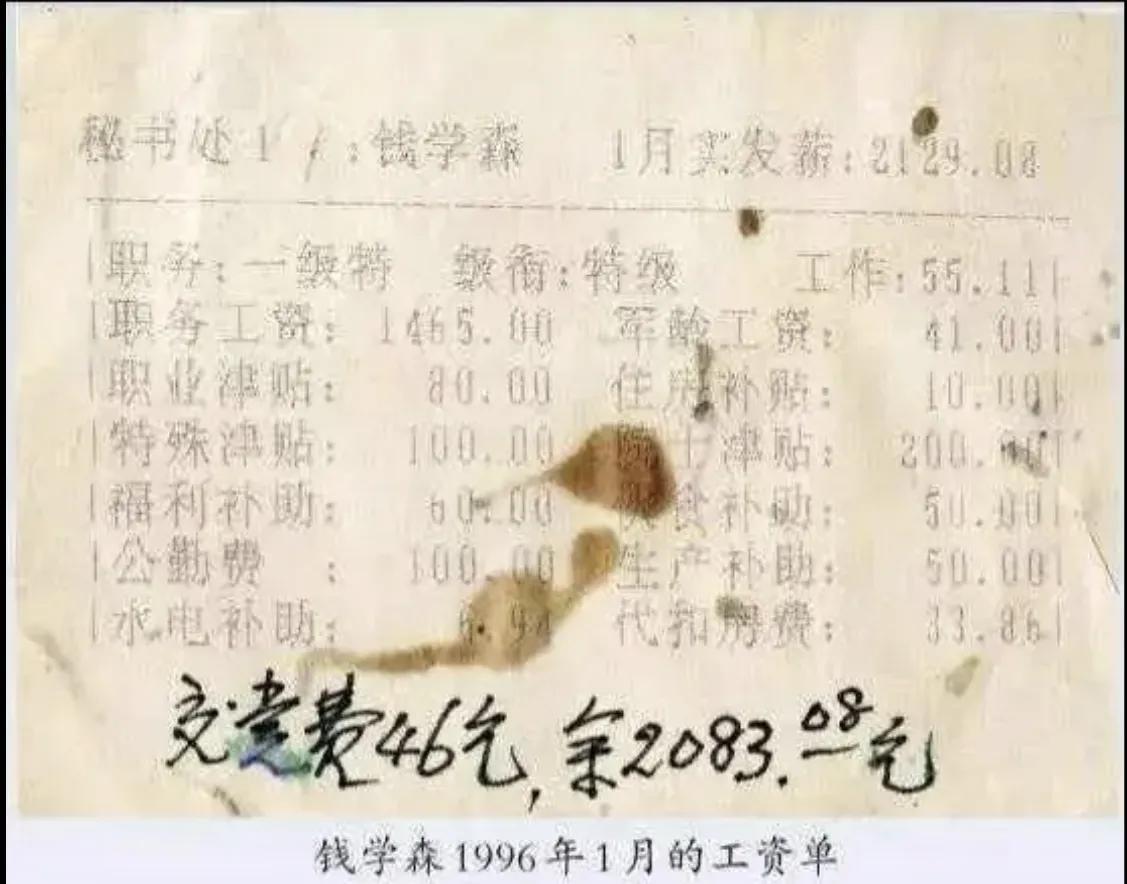 秘书处1 / :钱学森 1月实发薪:2129.08
职务:一级特 级衔:特级 工作:55.11
职务工资: 1465.00 军龄工资: 41.00
职业津贴: 80.00 住房补贴: 10.00
特殊津贴: 100.00 院士津贴: 200.00
福利补助: 60.00 伙食补助: 50.00
公勤费 : 100.00 生产补助: 50.00
水电补助: 6.94 代扣房费: 33.86
交党费46元,余2083.08元
钱学森1996年1月的工资单